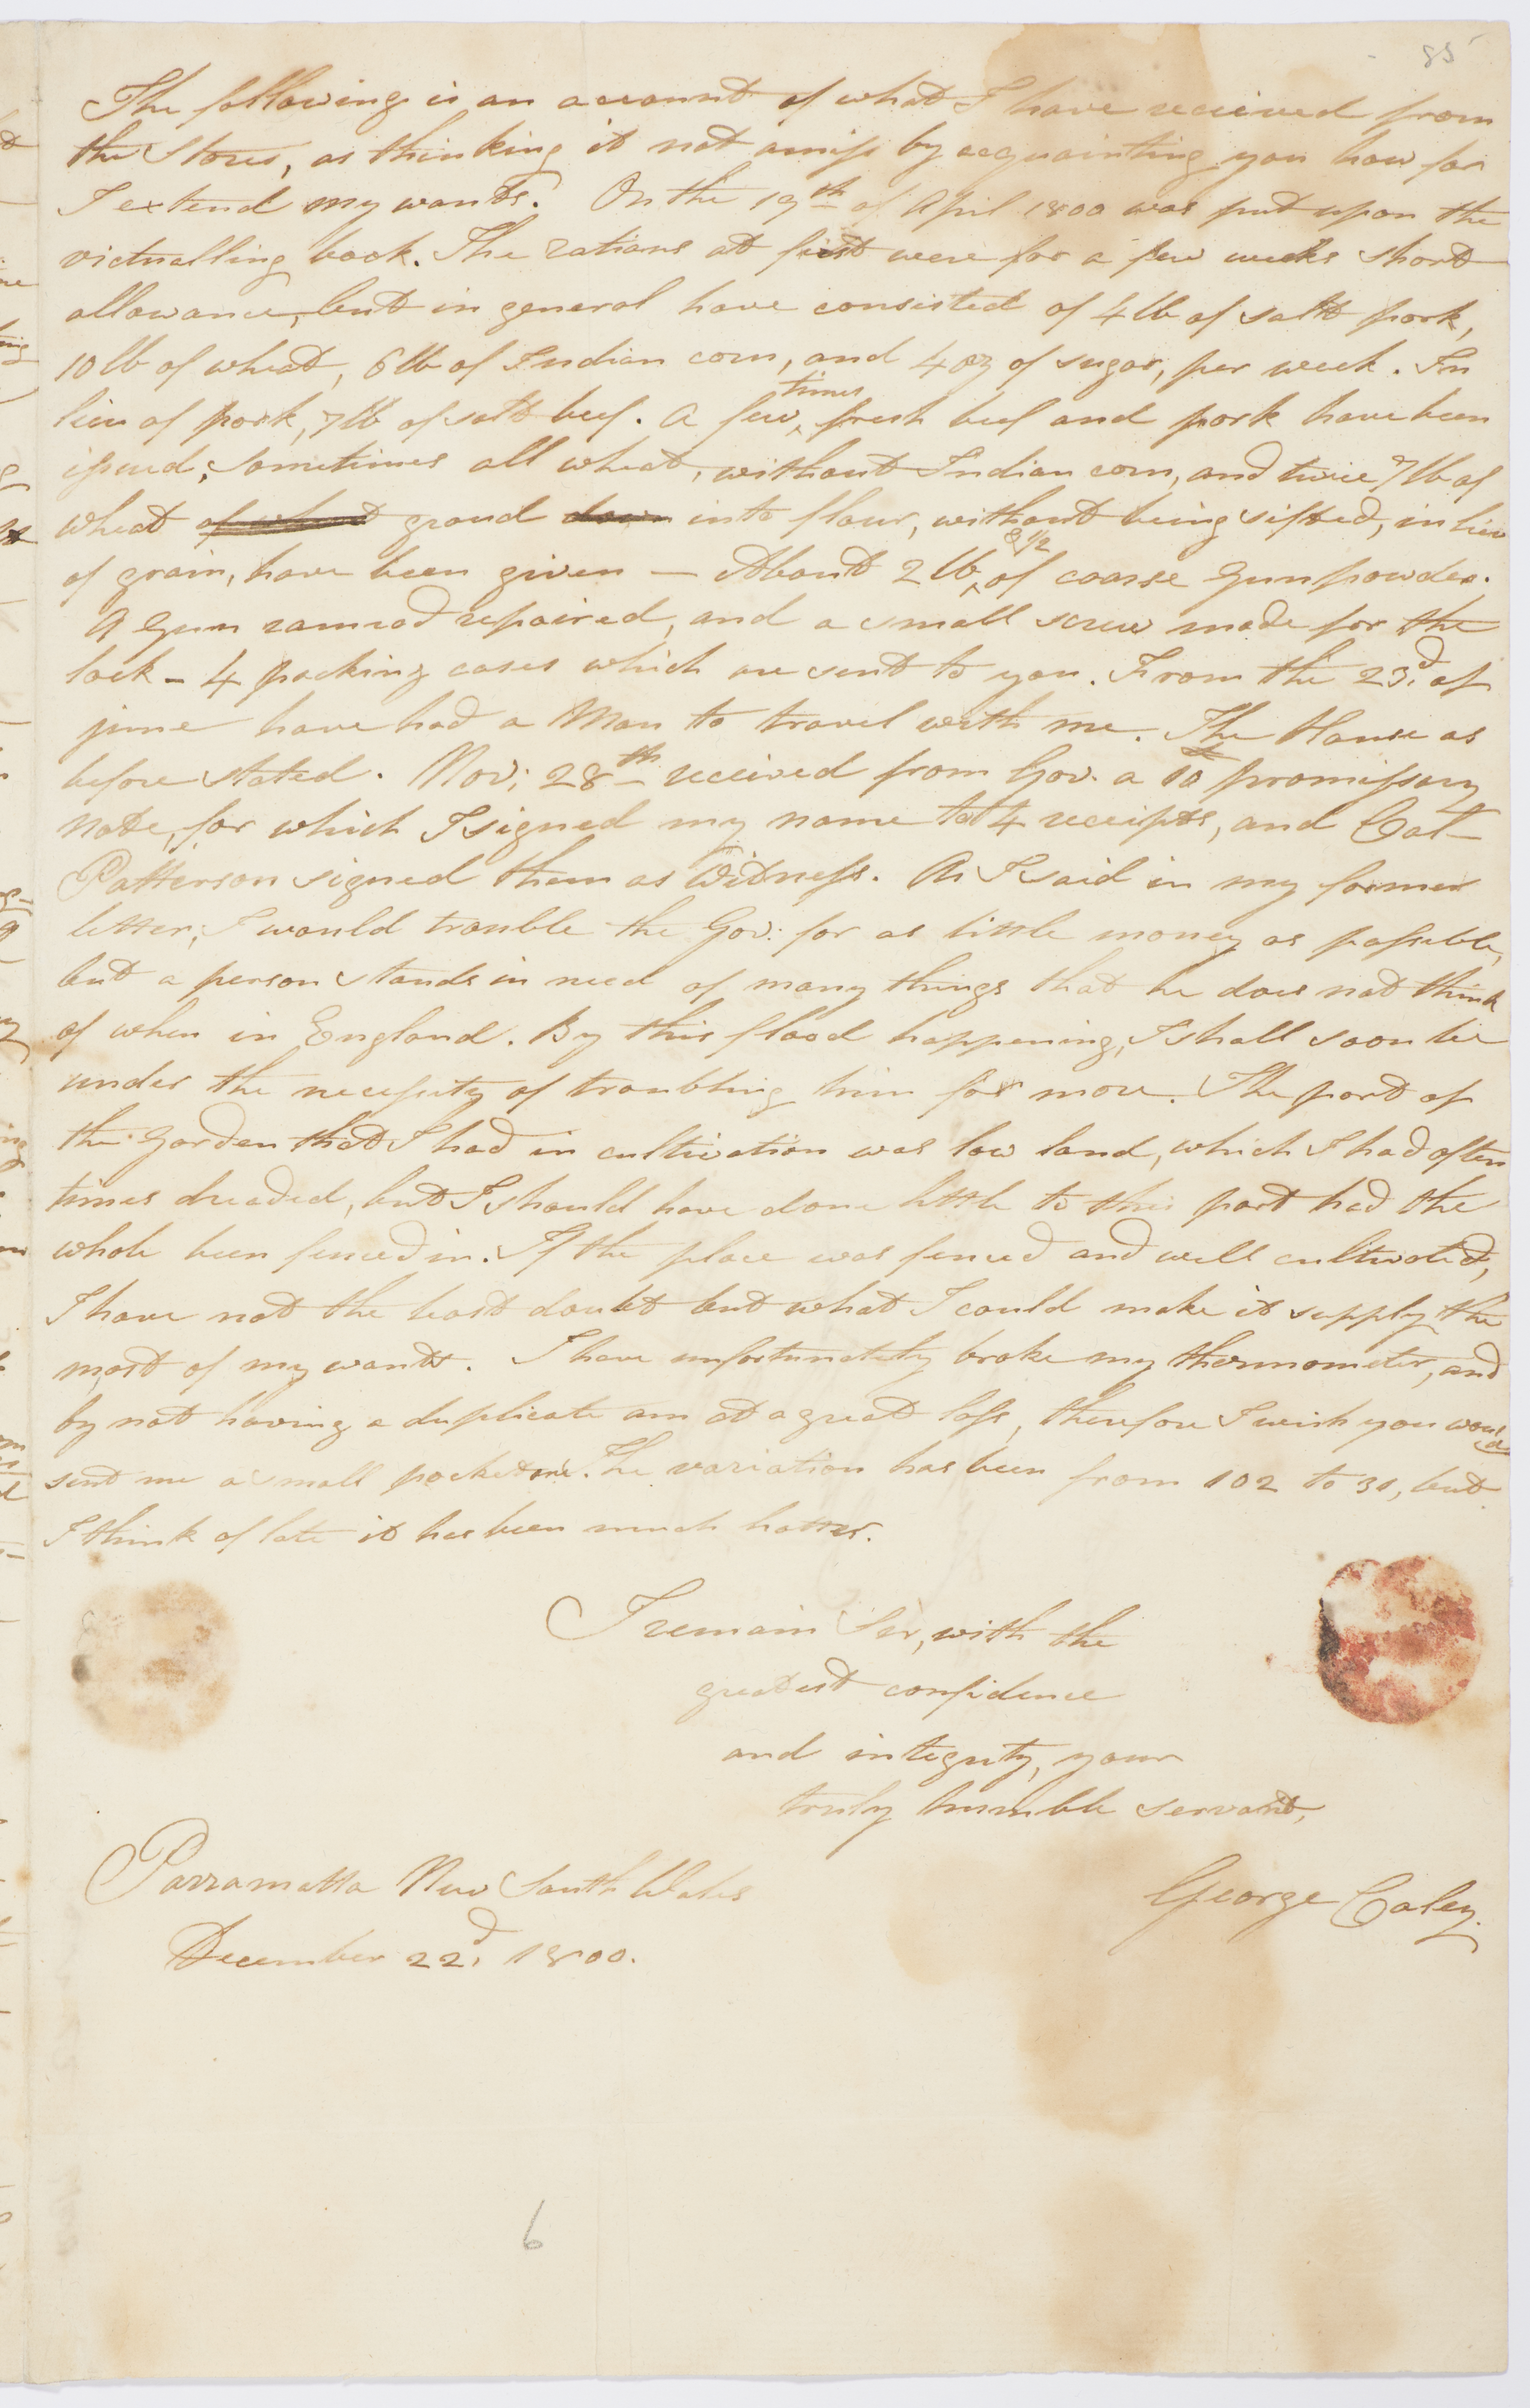 85
The following is an account of what I have received from
the Stores, as thinking it not amiss by acquainting you how far
I extend my wants. On the 19th of April 1800 was put upon the
victualling book. The rations at first were for a few weeks short
allowance, but in general have consisted of 4lb of salt pork,
10lb of wheat, 6lb of Indian corn, and 4oz of sugar, per week. In
lieu of pork, 7lb of salt beef. A few times fresh beef and pork have been
issued; sometimes all wheat, without Indian corn, and twice 7lb of
wheat of wheat groud down into flour, without being sifted, in lieu
of grain, have been given — About 2lb & 1/2 of coarse Gunpowder.
A Gun ramrod repaired, and a small screw made for the
lock - 4 packing cases which are sent to you. From the 23d. of
june have had a Man to travel with me. The House as
before stated. Nov: 28th received from Gov. a 10£ promissory
note, for which I signed my name to 4 receipts, and Col-
Patterson signed them as Witness. As I said in my former
letter, I would trouble the Gov: for as little money as possible,
but a person stands in need of many things that he does not think
of when in England. By this flood happening, I shall soon be
under the necessity of troubling him for more. The part of
the Garden that I had in cultivation was low land, which I had often
times dreaded, but I should have done little to this part had the
whole been fenced in. If the place was fenced and well cultivated,
I have not the least doubt but what I could make it supply the
most of my wants. I have unfortunately broke my thermometer, and
by not having a duplicate am at a great loss, therefore I wish you would
send me a small pocket one. The variation has been from 102 to 31, but
I think of late it has been much hotter.
I remain Sir, with the
greatest confidence
and integrity, your
truly humble servant,
George Caley.
Parramatta New South Wales
December 22d, 1800.
6